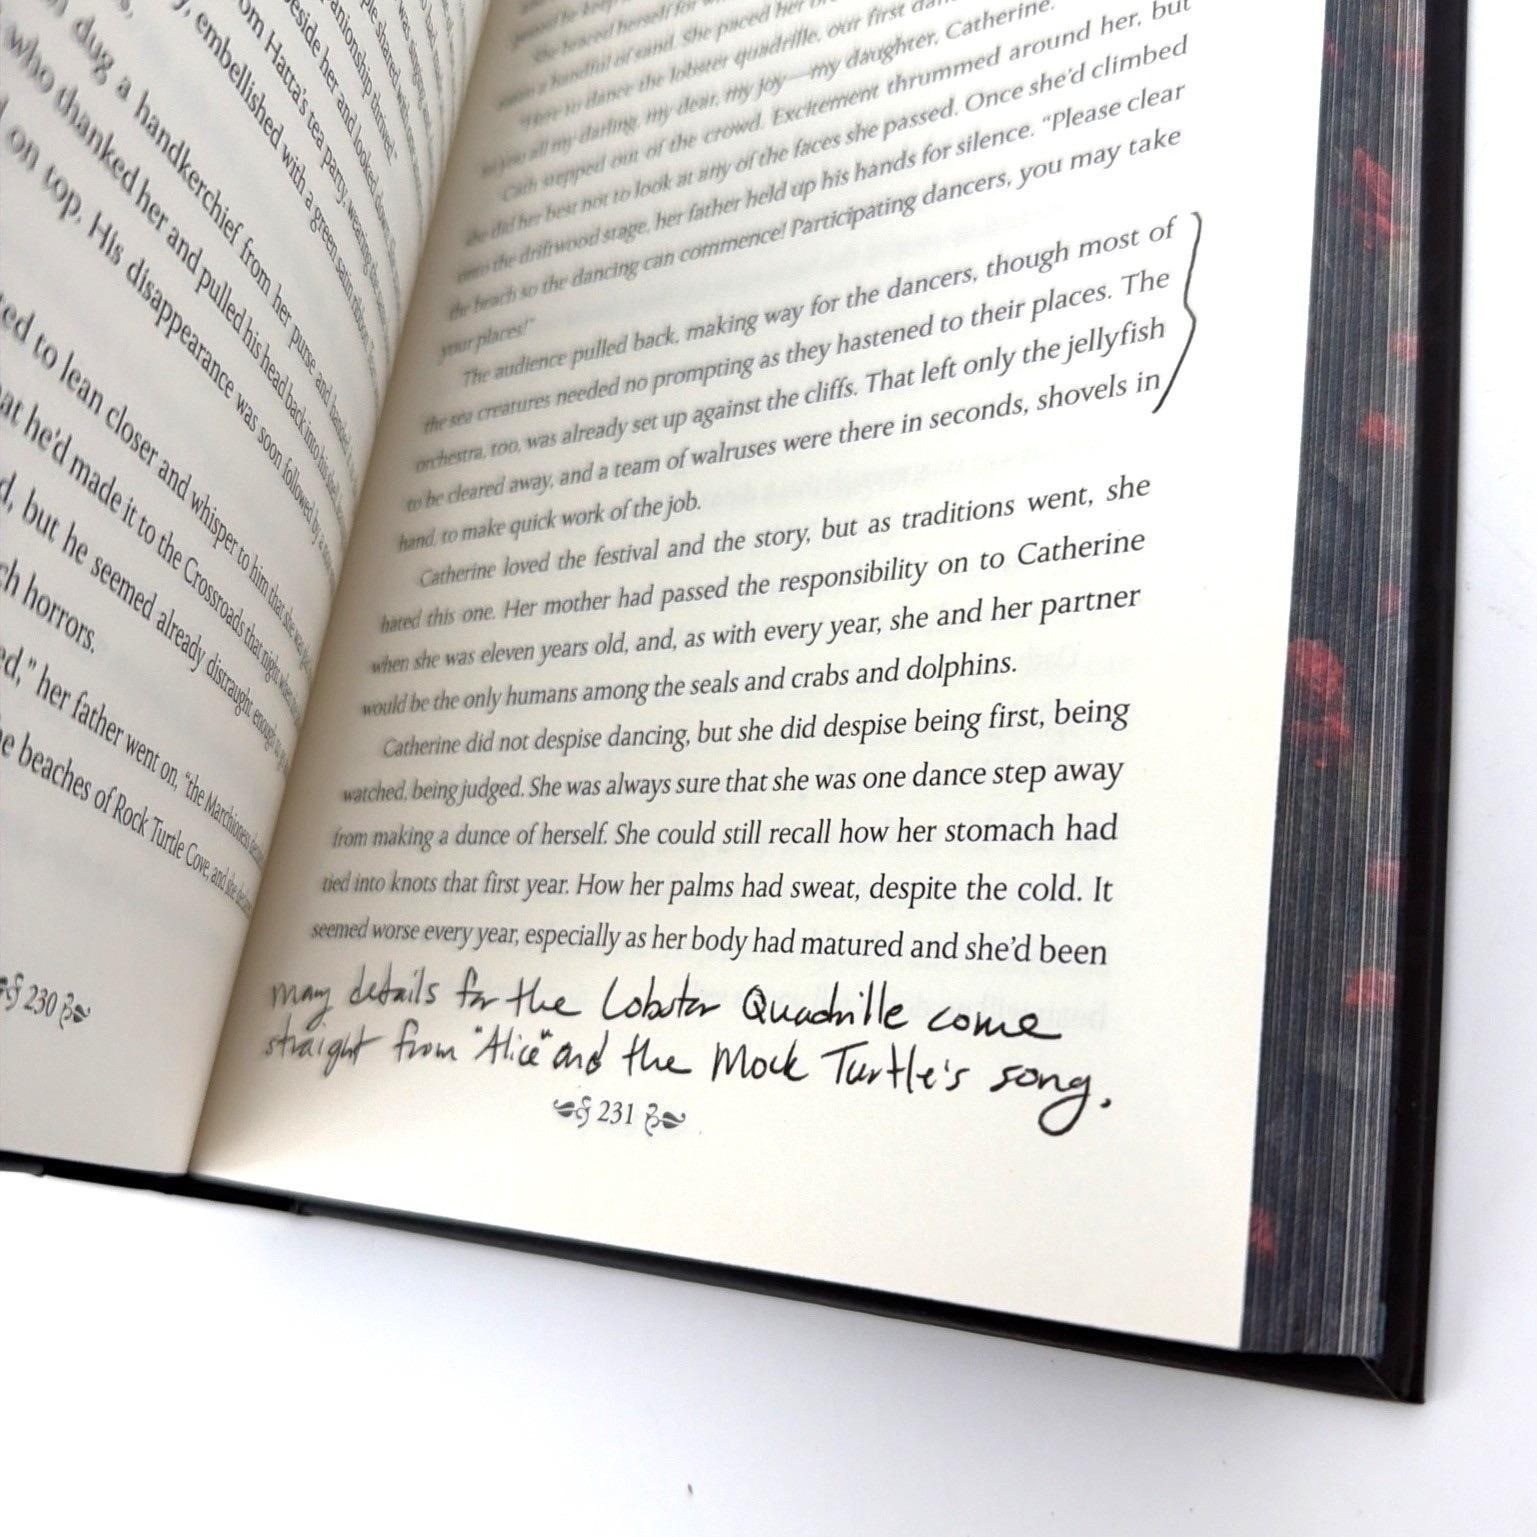 dug a handkerchief from her purse and handed
who thanked her and pulled his head back into his shell
on top. His disappearance was soon followed by a
ted to lean closer and whisper to him that she was
at he'd made it to the Crossroads that night, when
d, but he seemed already distraught enough
ch horrors.
ed," her father went on, "the Marchioness
e beaches of Rock Turtle Cove, and she
230
"Here to dance the lobster quadrille, our first
to you all my darling, my dear, my joy—my daughter, Catherine.
Cath stepped out of the crowd. Excitement thrummed around her, but
she did her best not to look at any of the faces she passed. Once she'd climbed
onto the driftwood stage, her father held up his hands for silence. "Please clear
the beach so the dancing can commence! Participating dancers, you may take
your places!"
The audience pulled back, making way for the dancers, though most of
the sea creatures needed no prompting as they hastened to their places. The
orchestra, too, was already set up against the cliffs. That left only the jellyfish
to be cleared away, and a team of walruses were there in seconds, shovels in
hand, to make quick work of the job.
Catherine loved the festival and the story, but as traditions went, she
hated this one. Her mother had passed the responsibility on to Catherine
when she was eleven years old, and, as with every year, she and her partner
would be the only humans among the seals and crabs and dolphins.
Catherine did not despise dancing, but she did despise being first, being
watched, being judged. She was always sure that she was one dance step away
from making a dunce of herself. She could still recall how her stomach had
tied into knots that first year. How her palms had sweat, despite the cold. It
seemed worse every year, especially as her body had matured and she'd been
many details for the Lobster Quadrille come
straight from "Alice" and the Mock Turtle's song.
231